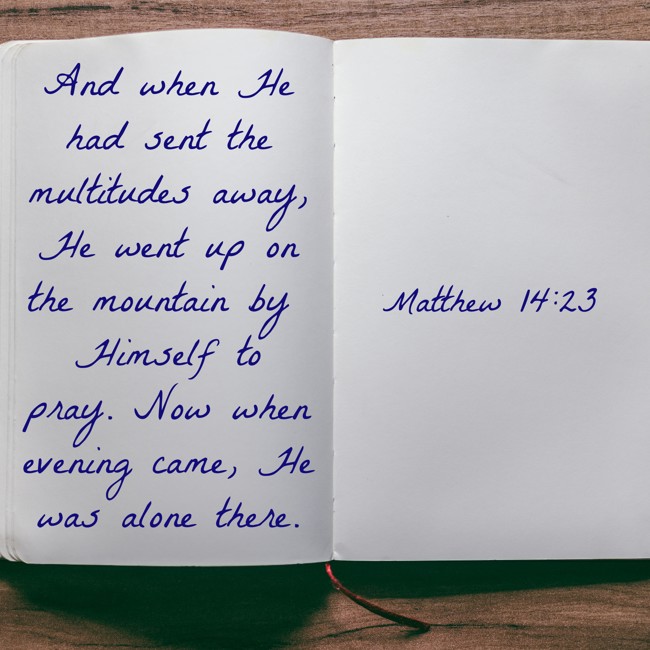 And when He
had sent the
multitudes away,
He went up on
the mountain by
Himself to
pray. Now when
evening came, He
was alone there.
Matthew 14:23